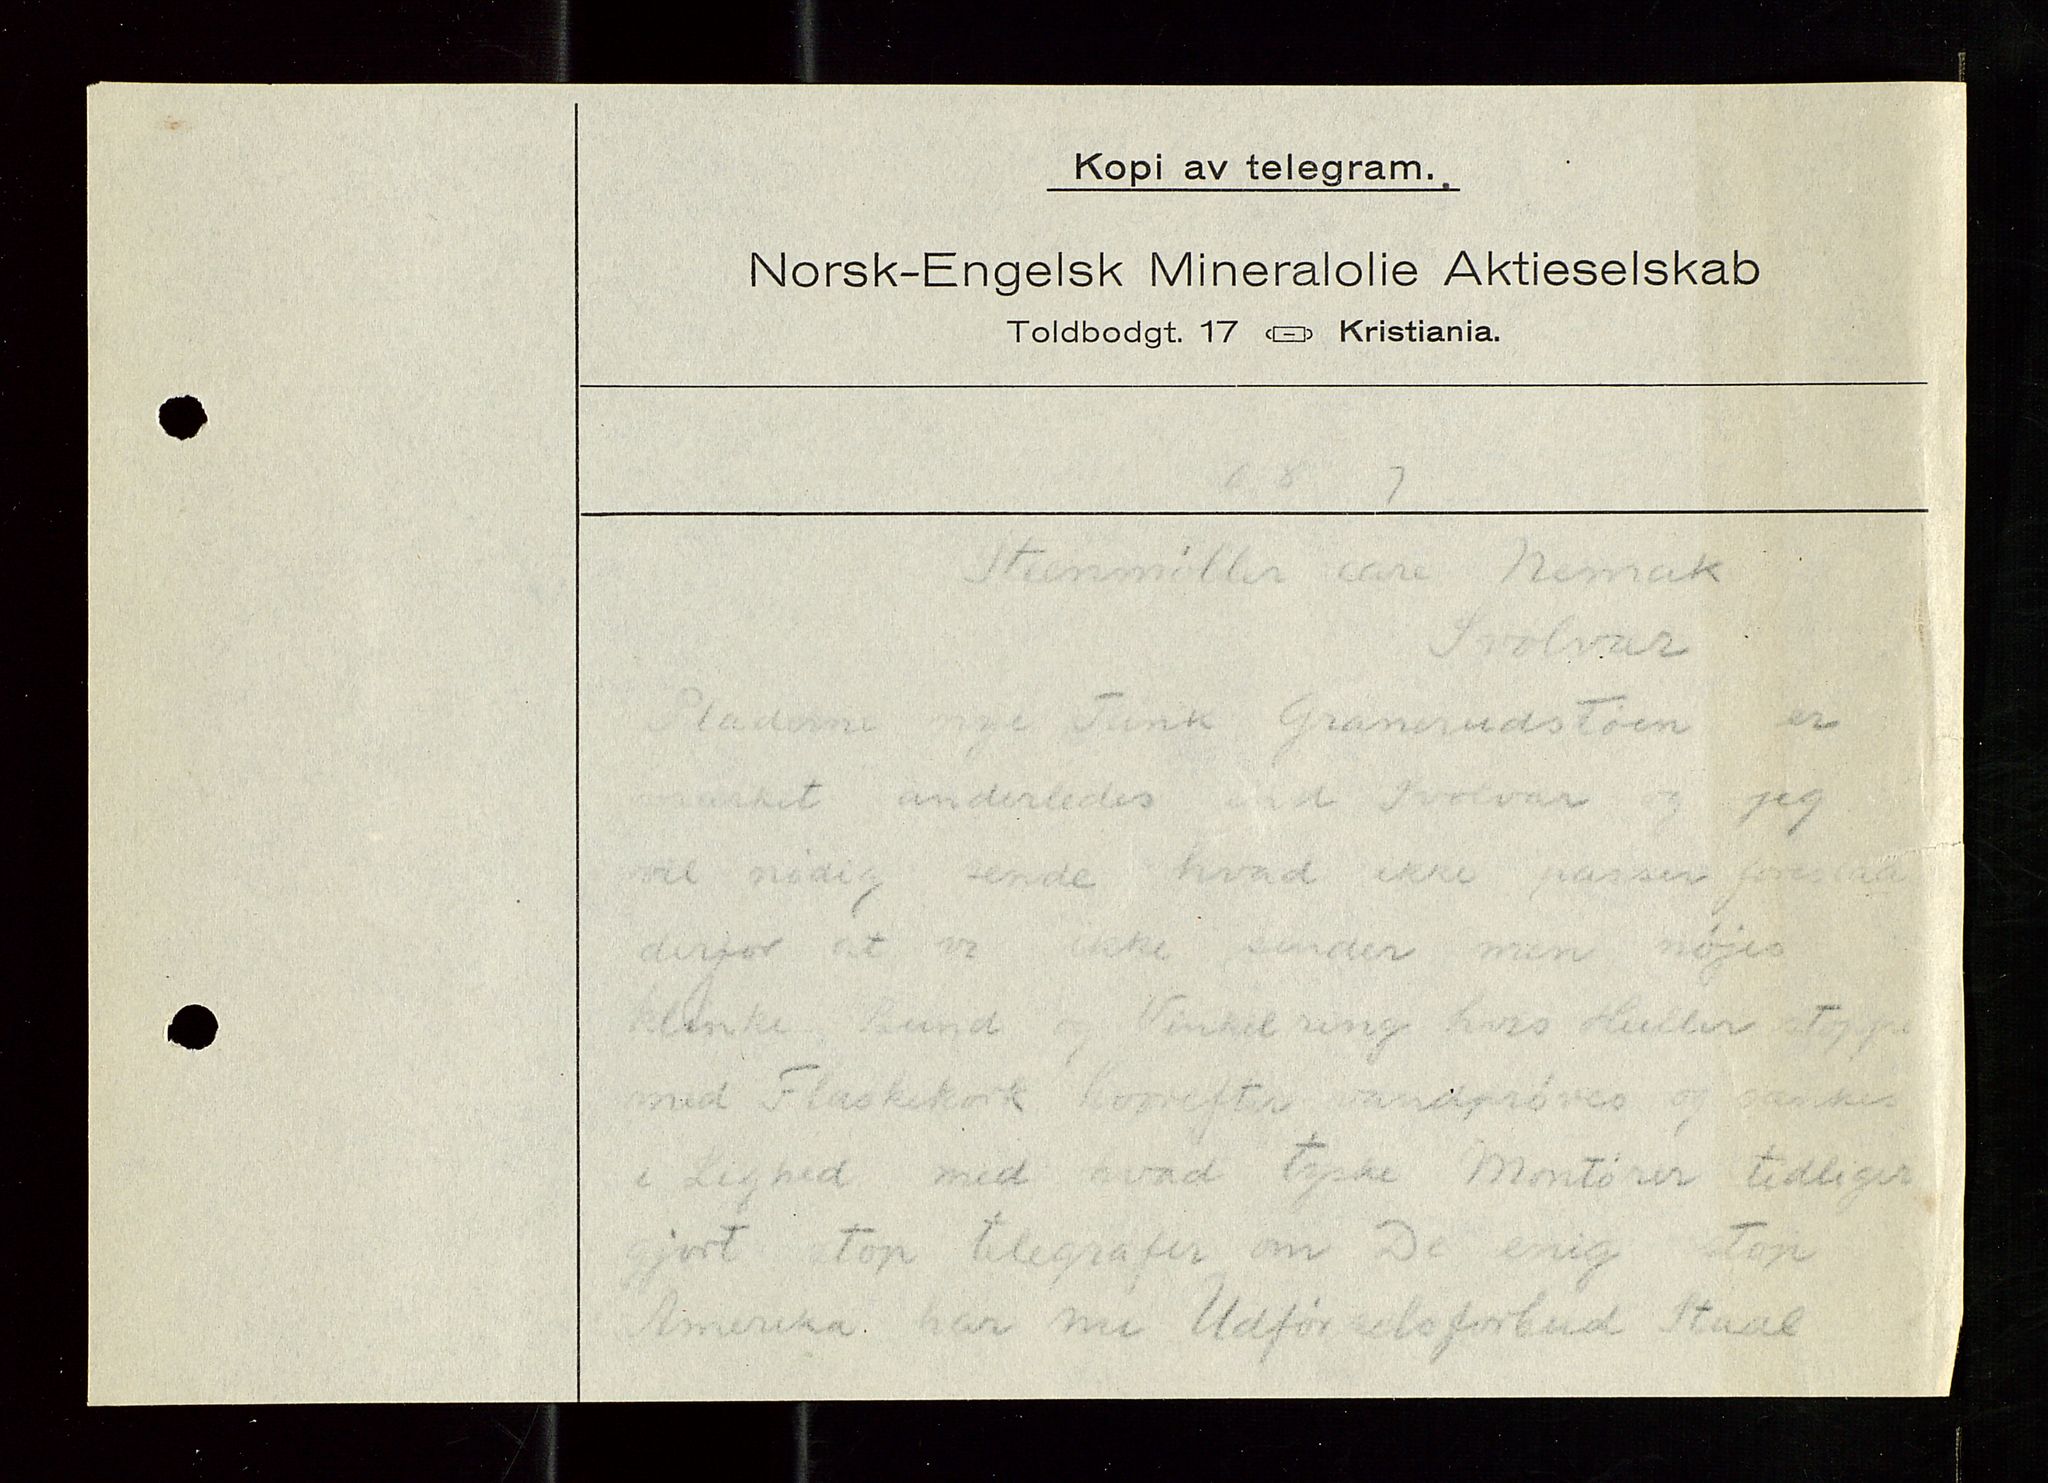 Kopi av telegram.
Norsk-Engelsk Mineralolie Aktieselskab
Toldbodgt. 17 Kristiania.
8 7
Steenmøller care Nemak
Svolvær
Pladerne nye Tank Granerudstøen er
mærket anderledes end Svolvær og jeg
vil nødig sende hvad ikke passer foreslaar
derfor at vi ikke sender men nøjes
klinke Bund og Vinkelring hvis Huller stoppes
med Flaskekork hvorefter vandprøves og sænkes
i Lighed med hvad tyske Montører tidligere
gjort stop telegrafer om De enig stop
Amerika har nu Udførselsforbud Staal